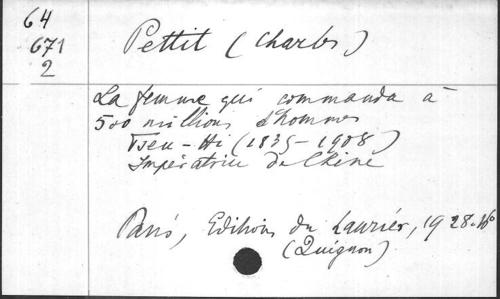 64
671
2
Pettit (Charles)
La femme qui commanda à
500 millions d'hommes
Tseu-Hi (1835-1908)
Impératrice de Chine
Paris, Editions du Laurier, 1928. 16°
(Quignon)